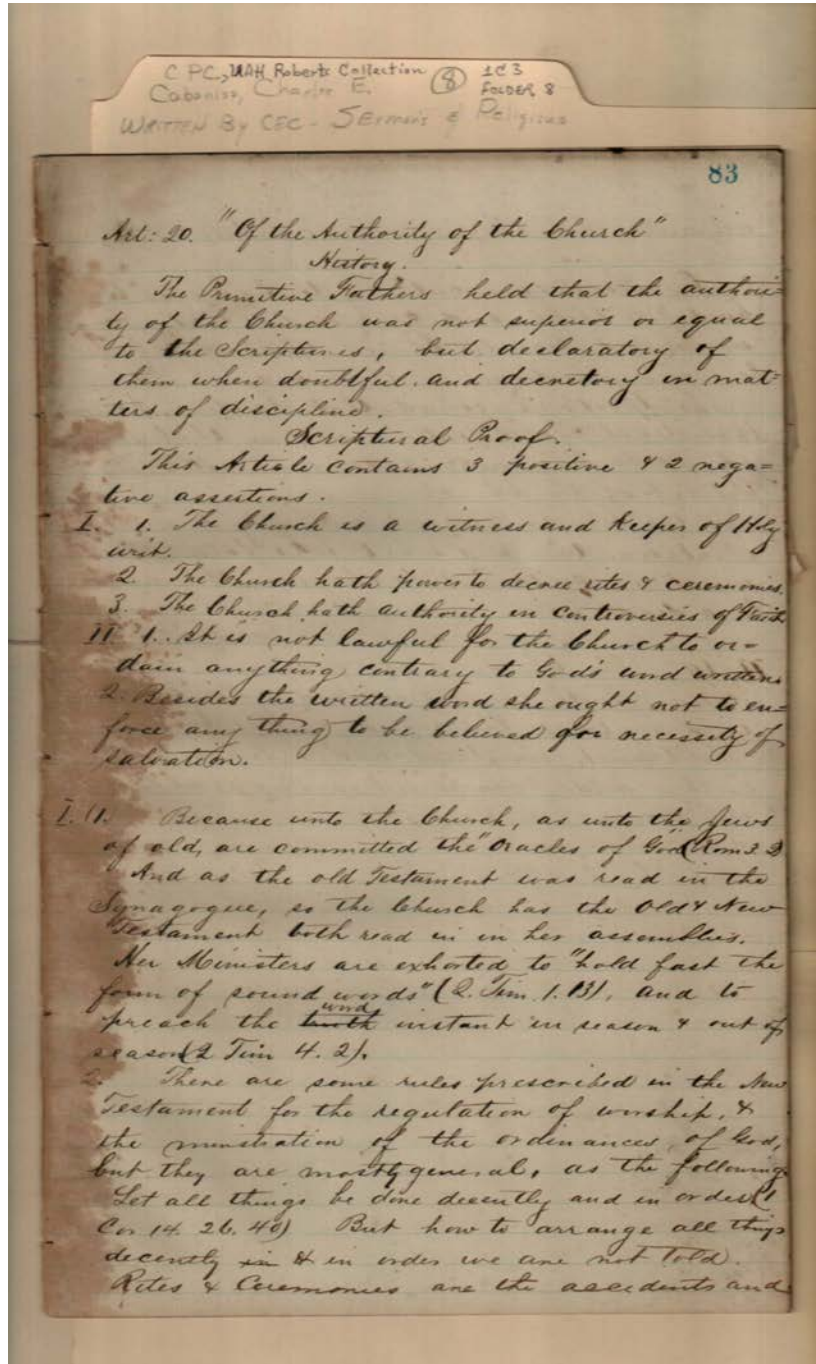 C P C, UAH Roberts Collection ⑧ 1C3
Cabaniss, Charles E. FOLDER 8
WRITTEN By CEC - SErmons & Religious
83
Art: 20. "Of the Authority of the Church"
History.
The Primitive Fathers held that the authori=
ty of the Church was not superior or equal
to the Scriptures, but declaratory of
them when doubtful. and decretory in mat-
ters of discipline.
Scriptural Proof.
This Article contains 3 positive & 2 nega=
tive assertions.
I. 1. The Church is a witness and keeper of Holy
writ.
2. The Church hath power to decree rites & ceremonies.
3. The Church hath authority in controversies of Faith
II 1. It is not lawful for the Church to or=
dain anything contrary to God's word written
2. Besides the written word she ought not to en=
force any thing to be believed for necessity of
salvation.
I. (1. Because unto the Church, as unto the Jews
of old, are committed the "Oracles of God" (Rom 3 2)
And as the old Testament was read in the
Synagogue, so the Church has the Old & New
Testament both read in in her assemblies.
Her Ministers are exhorted to "hold fast the
form of sound words" (2. Tim. 1. 13), and to
preach the truth word instant in season & out of
season (2 Tim 4. 2).
2. There are some rules prescribed in the New
Testament for the regulation of worship, &
the ministration of the ordinances of God,
but they are mostly general, as the following
Let all things be done decently and in order (1
Cor 14. 26. 40) But how to arrange all things
decently in & in order we are not told.
Rites & Ceremonies are the accidents and